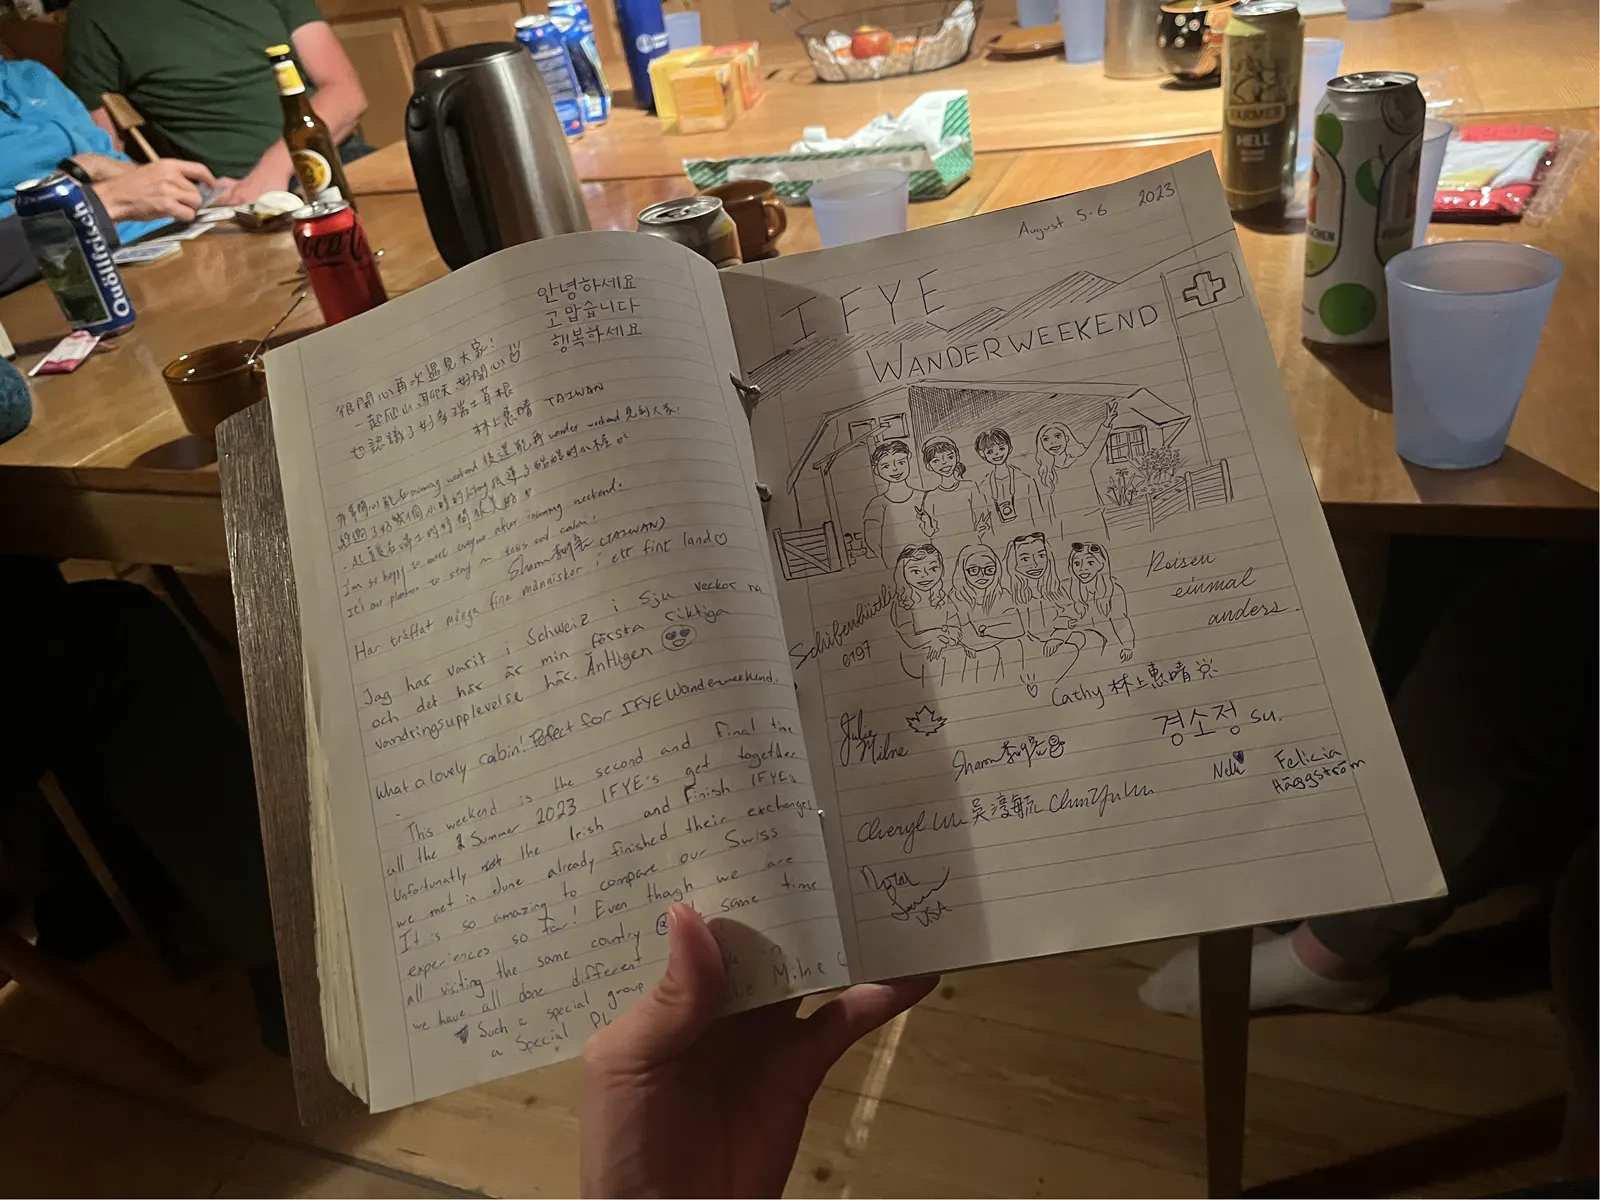 안녕하세요
고맙습니다
행복하세요
很開心再次遇見大家!
一起爬山聊天好開心
也認識了好多瑞士草根
林上惠晴 TAIWAN
I'm so happy to meet everyone after incoming weekend.
It's our pleasure to stay in and calm!
Sharon (TAIWAN)
Har träffat många fina människor i ett fint land♡
Jag har varit i Schweiz i sju veckor nu
och det här är min första riktiga
vandringsupplevelse här. Äntligen
What a lovely cabin! Perfect for IFYE Wanderweekend.
This weekend is the second and final time
all the Summer 2023 IFYE's get together
Unfortunatly the Irish and Finish IFYE's
we met in June already finished their exchanges
It is so amazing to compare our Swiss
experiences so far! Even though we are
all visiting the same country same time
we have all done different
Such a special group
a special Milne
August 5-6 2023
IFYE
WANDERWEEKEND
Reisen
einmal
anders.
6197
Cathy 林上惠晴
Julie
Milne
Sharon
경소정 Su.
Neli Felicia
Häggström
Cheryl Wu 吳淳毓 ChunYu Wu
USA
Quöllfrisch
FARMER
HELL